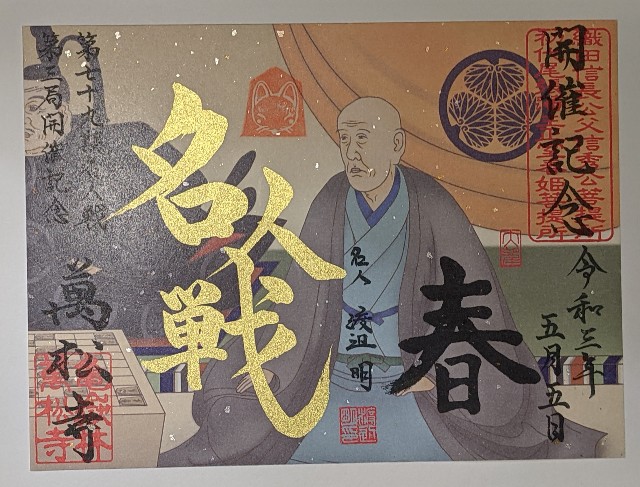 開催記念
織田信長公父信秀公菩提所
令和三年
五月五日
春
名人戦
名人 渡辺 明
第七十九 戦
第三局開催記念
萬松寺
亀嶽林
萬松寺